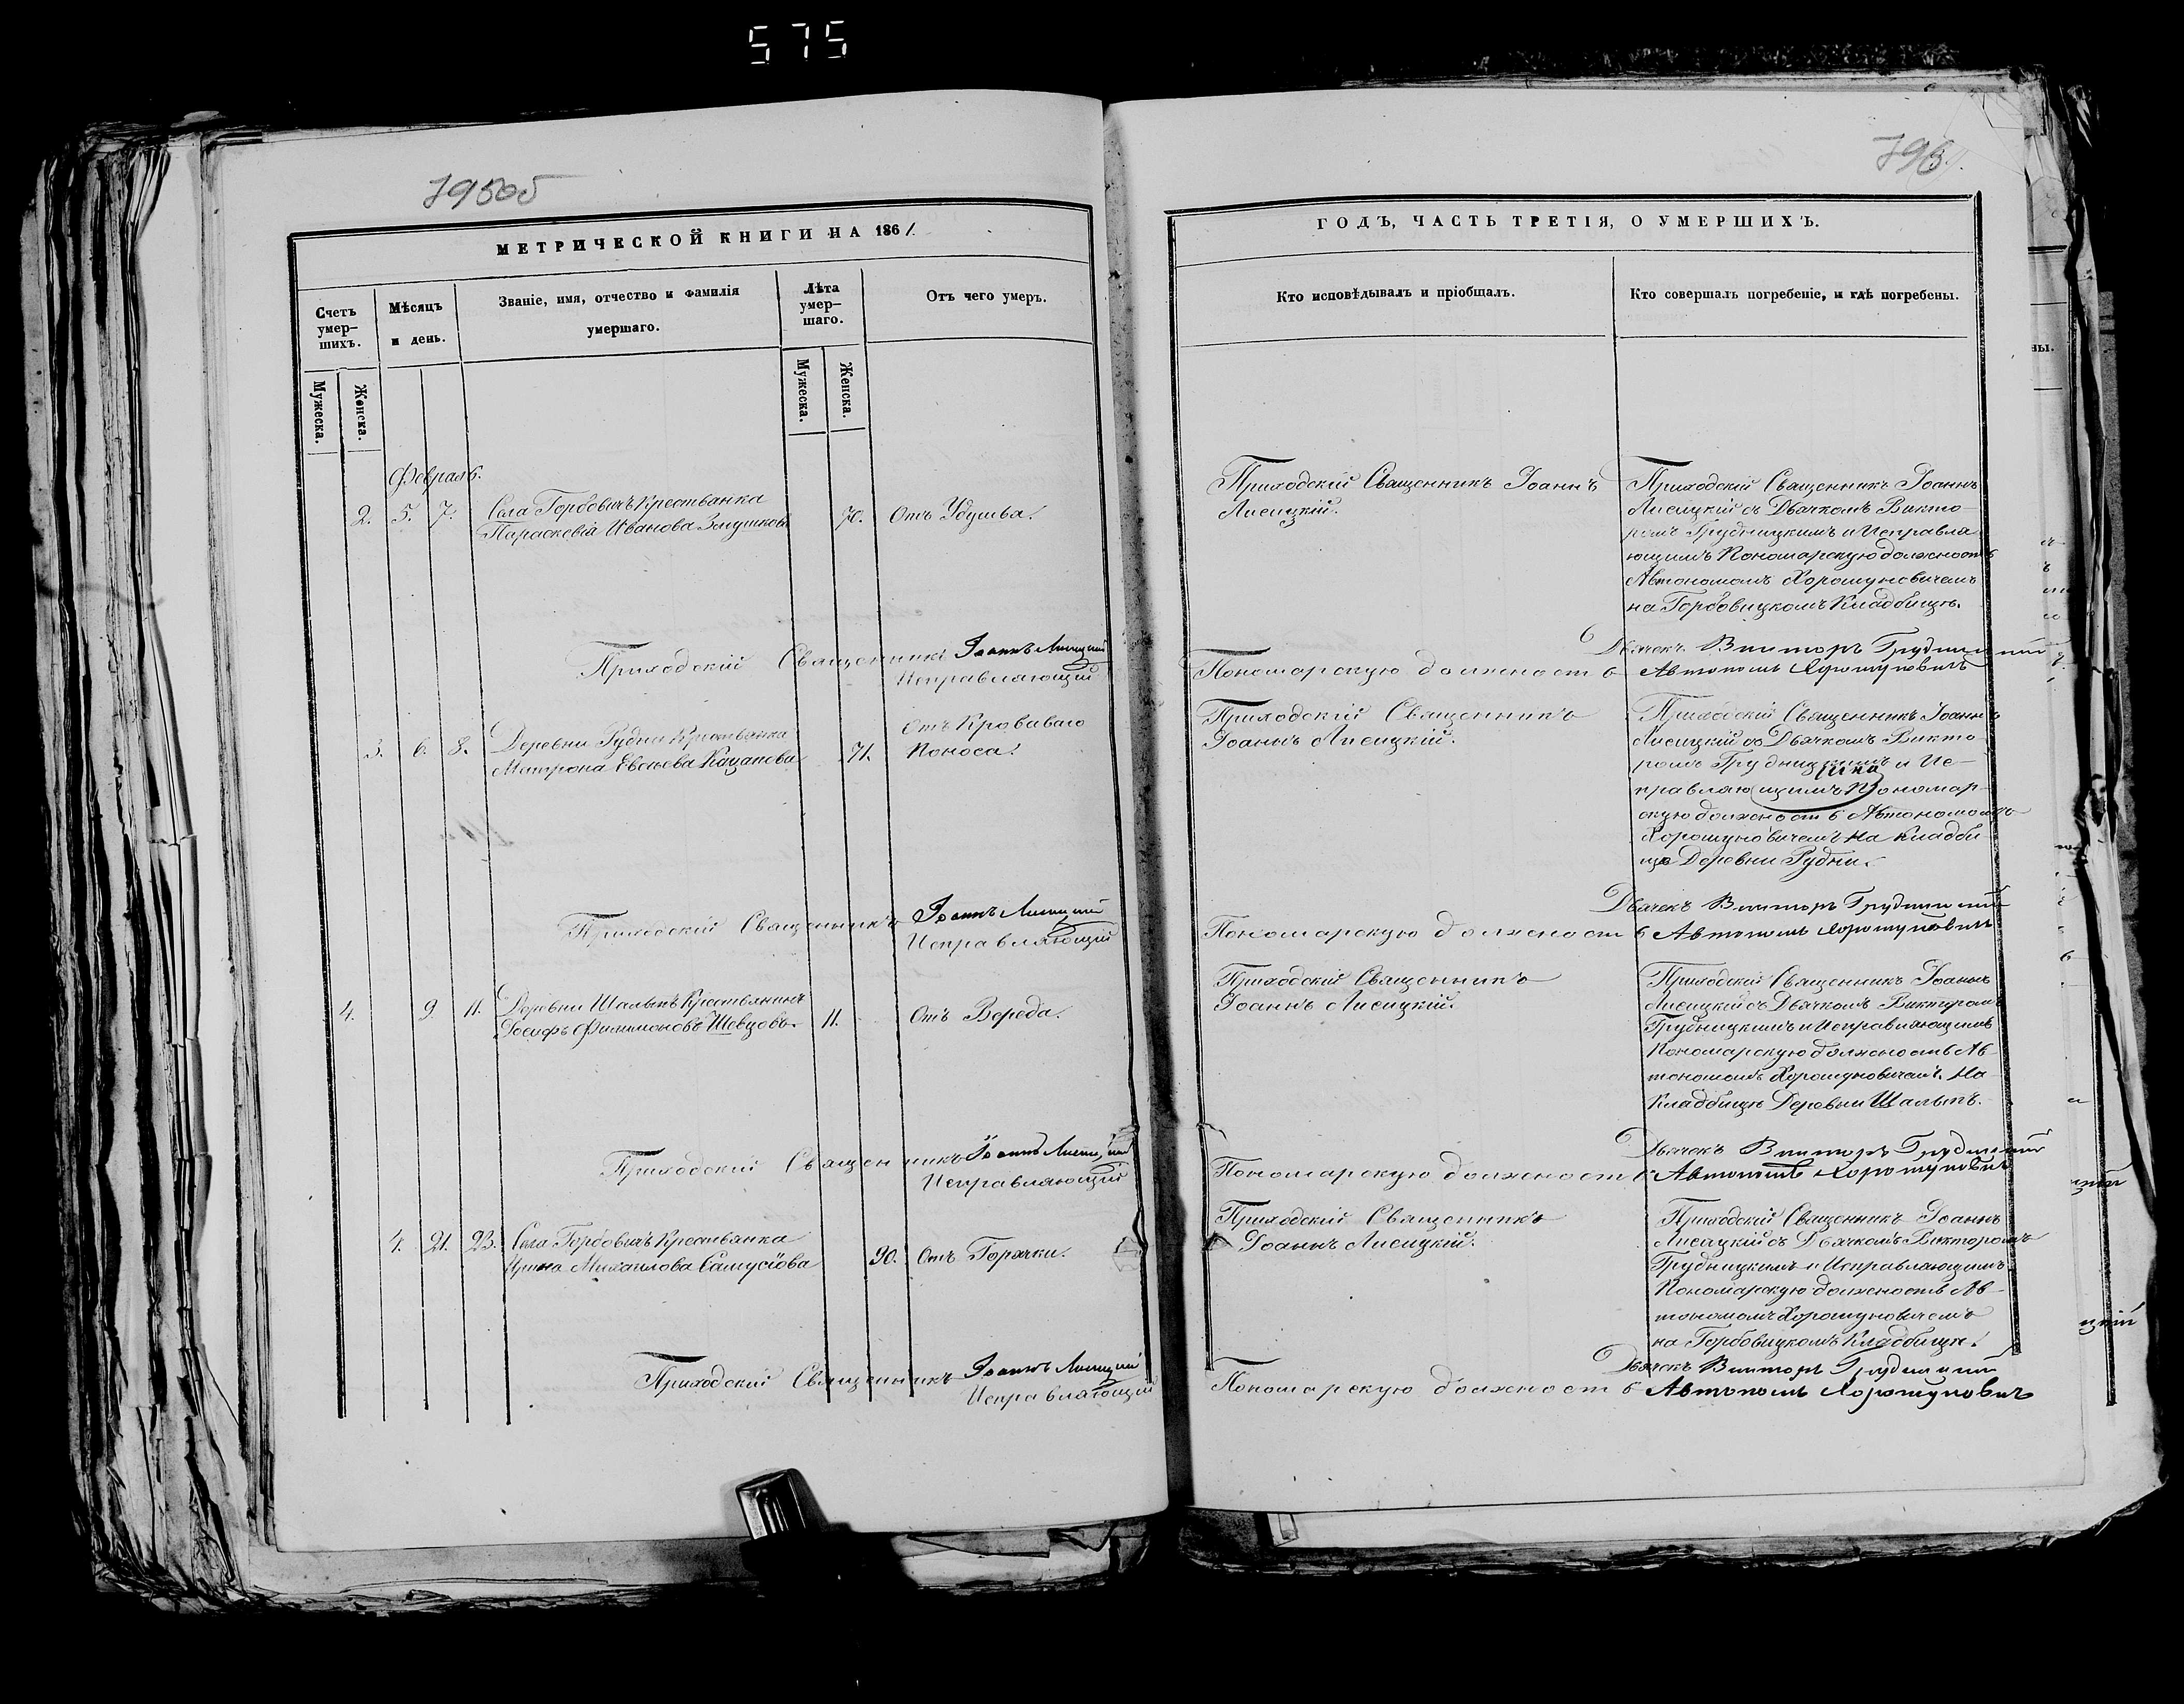 575
795об
МЕТРИЧЕСКОЙ КНИГИ НА 1861.
Счетъ умер-шихъ.
Мѣсяцъ и день.
Званіе, имя, отчество и фамилія умершаго.
Лѣта умер-шаго.
Отъ чего умеръ.
Мужеска.
Женска.
Мужеска.
Женска.
Февраль.
2. 5. 7. Села Горбовичъ Крестьянка 70. Отъ Удушья.
Параскевія Иванова
Приходскій Священникъ Іоаннъ Лисицкій
Исправляющій
3. 6. 8. Деревни Рудни Крестьянка 71. Отъ Кроваваго
Матрона Евсѣева Казакова Поноса.
Приходскій Священникъ Іоаннъ Лисицкій
Исправляющій
4. 9. 11. Деревни Шалыпъ Крестьянинъ 11. Отъ Вереда.
Іосифъ Филимоновъ Шевцовъ.
Приходскій Священникъ Іоаннъ Лисицкій
Исправляющій
4. 21. 23. Села Горбовичъ Крестьянка 90. Отъ Горячки.
Ирина Михаилова Самусіова
Приходскій Священникъ Іоаннъ Лисицкій
Исправляющій
796.
ГОДЪ, ЧАСТЬ ТРЕТІЯ, О УМЕРШИХЪ.
Кто исповѣдывалъ и пріобщалъ.
Кто совершалъ погребеніе, и гдѣ погребены.
Приходскій Священникъ Іоаннъ
Лисицкій.
Приходскій Священникъ Іоаннъ
Лисицкій съ Дьячкомъ Викто-
ромъ Грудницкимъ и Исправля-
ющимъ Пономарскую должность
Автономомъ Хорошуновичемъ
на Горбовицкомъ Кладбищѣ.
Дьячекъ Викторъ Грудницкій
Пономарскую должность Автономъ Хорошуновичъ
Приходскій Священникъ
Іоаннъ Лисицкій.
Приходскій Священникъ Іоаннъ
Лисицкій съ Дьячкомъ Викто-
ромъ Грудницкимъ и Ис-
правляющимъ Пономар-
скую должность Автономомъ
Хорошуновичемъ на Кладби-
щѣ Деревни Рудни.
Дьячекъ Викторъ Грудницкій
Пономарскую должность Автономъ Хорошуновичъ
Приходскій Священникъ
Іоаннъ Лисицкій.
Приходскій Священникъ Іоаннъ
Лисицкій съ Дьячкомъ Викторомъ
Грудницкимъ и Исправляющимъ
Пономарскую должность Ав-
тономомъ Хорошуновичемъ. На
Кладбищѣ Деревни Шалыпъ.
Дьячекъ Викторъ Грудницкій
Пономарскую должность Автономъ Хорошуновичъ
Приходскій Священникъ
Іоаннъ Лисицкій.
Приходскій Священникъ Іоаннъ
Лисицкій съ Дьячкомъ Викторомъ
Грудницкимъ и Исправляющимъ
Пономарскую должность Ав-
тономомъ Хорошуновичемъ
на Горбовицкомъ Кладбищѣ.
Дьячекъ Викторъ Грудницкій
Пономарскую должность Автономъ Хорошуновичъ